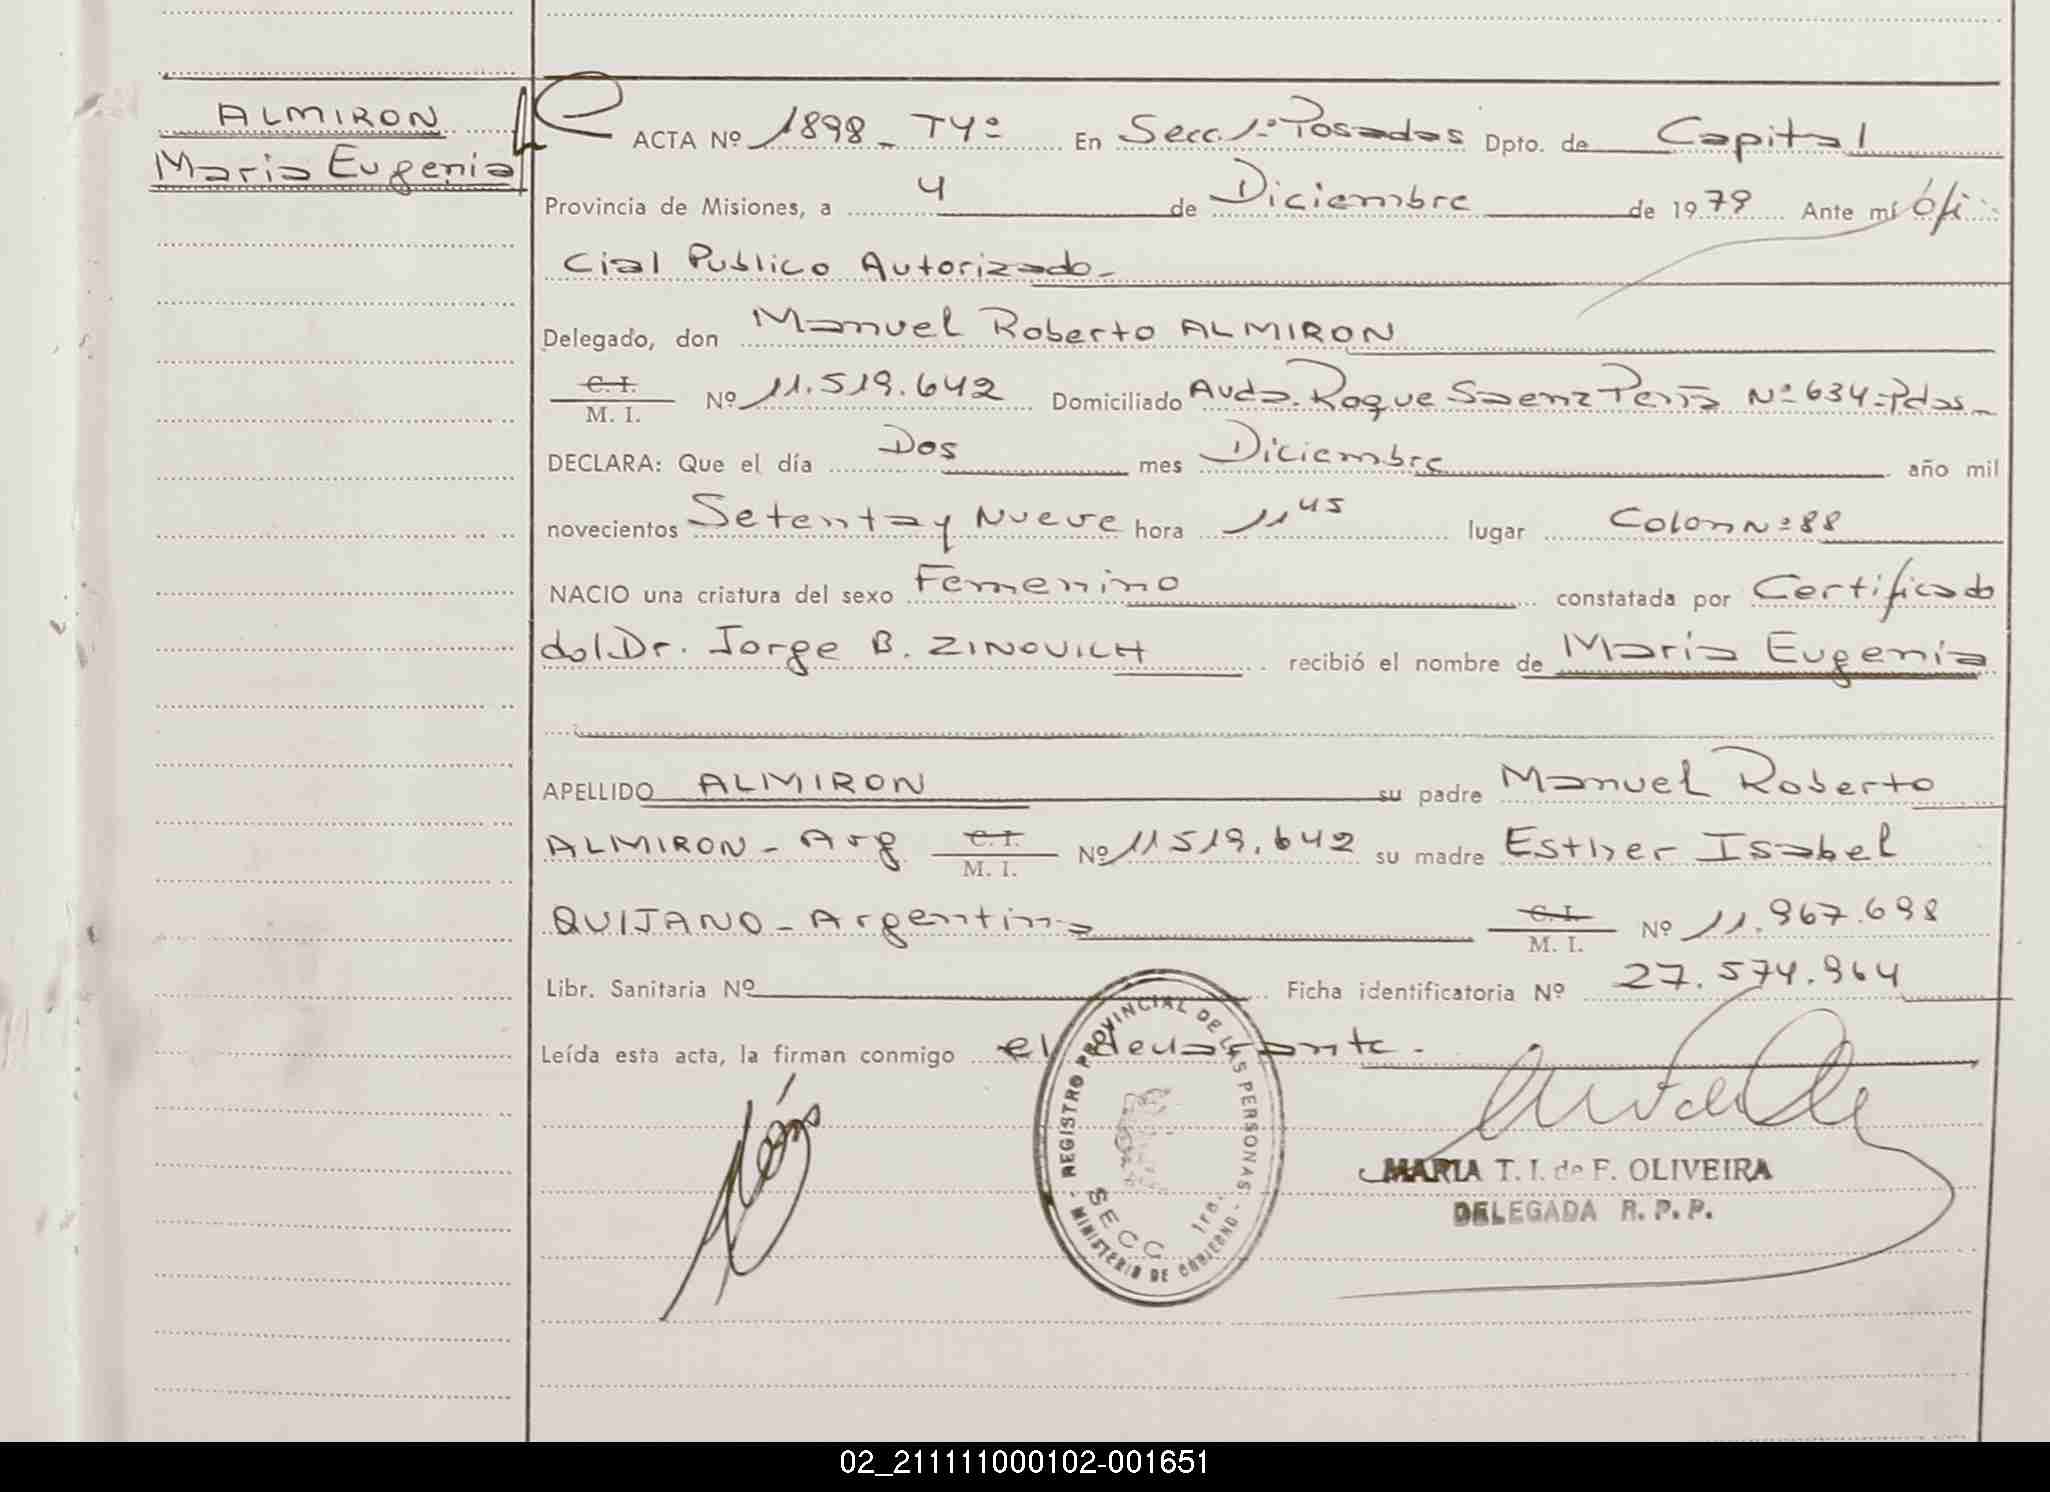 ALMIRON
Maria Eugenia
ACTA Nº 1898 - Tº 4º En Secc. 1º Posadas Dpto. de Capital
Provincia de Misiones, a 4 de Diciembre de 1979 Ante mí Ofi
cial Publico Autorizado -
Delegado, don Manuel Roberto ALMIRON
C. I.
M. I. Nº 11.519.642 Domiciliado Avda. Roque Saenz Peña Nº 634 - Pdas -
DECLARA: Que el día Dos mes Diciembre año mil
novecientos Setenta y Nueve hora 11 45 lugar Colon Nº 88
NACIO una criatura del sexo Femenino constatada por Certificado
del Dr. Jorge B. ZINOVICH recibió el nombre de Maria Eugenia
APELLIDO ALMIRON su padre Manuel Roberto
ALMIRON - Arg C. I.
M. I. Nº 11519.642 su madre Esther Isabel
QUIJANO - Argentina C. I.
M. I. Nº 11.967.698
Libr. Sanitaria Nº Ficha identificatoria Nº 27.574.964
Leída esta acta, la firman conmigo el declarante -
REGISTRO PROVINCIAL DE LAS PERSONAS
SECC 1ra.
MINISTERIO DE GOBIERNO
MARIA T. I. de F. OLIVEIRA
DELEGADA R. P. P.
02_211111000102-001651